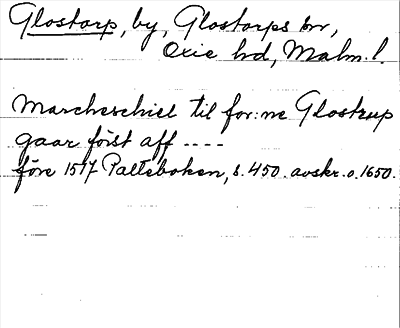 Glostorp, by, Glostorps sn,
Oxie hd, Malm. l.
Marcheschiel til for:ne Glostrup
gaar först aff ----
före 1517 Palteboken, s. 450. avskr. o. 1650.